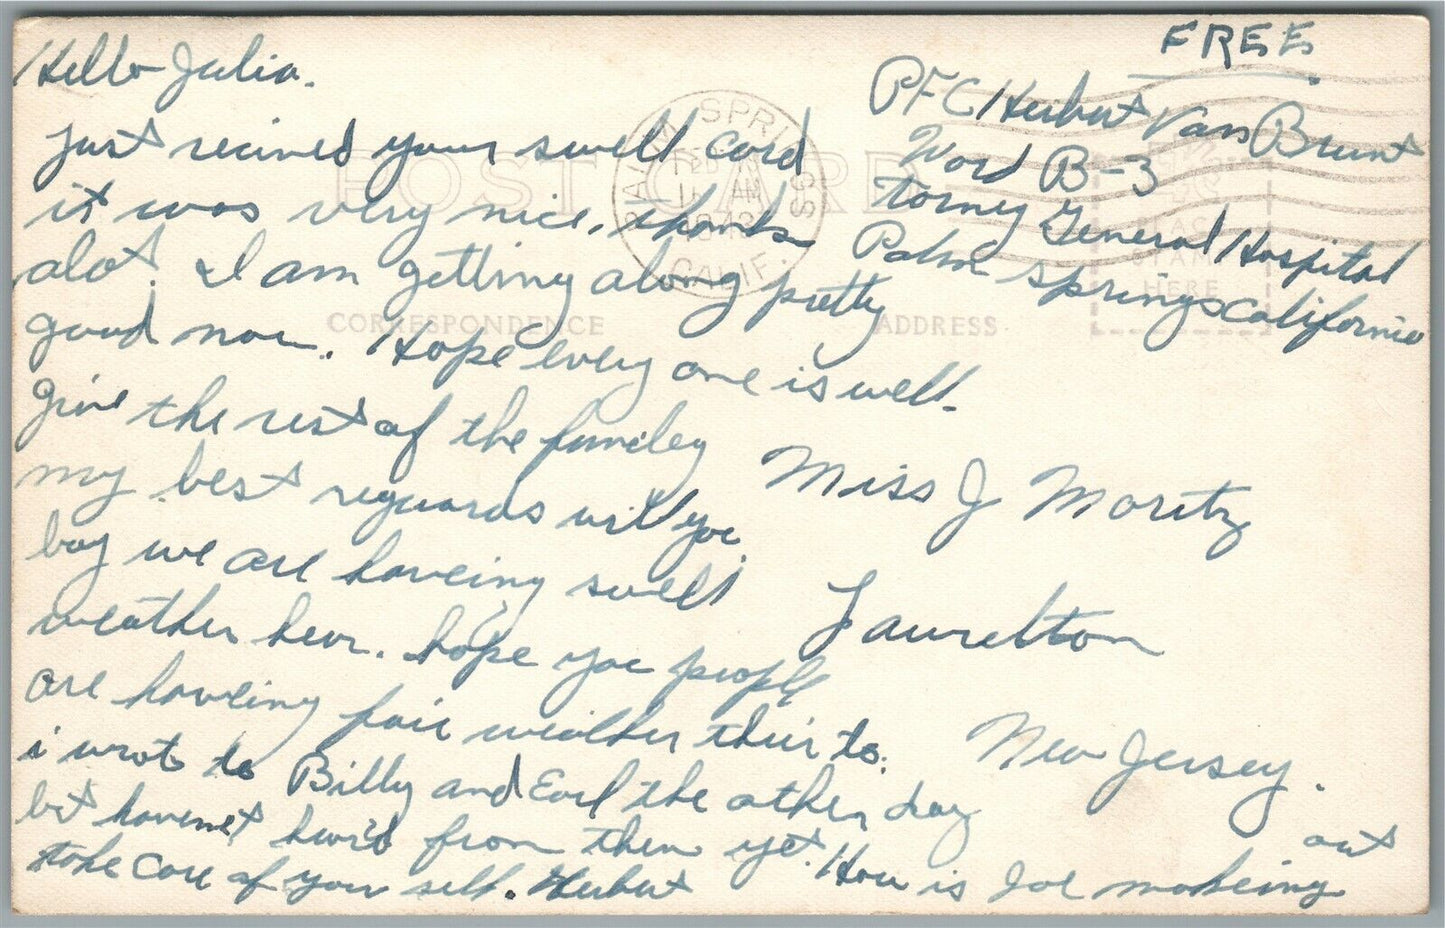 FREE
PFC Herbert Van Brunt
Word B-3
Torney General Hospital
Palm Springs California
PALM SPRINGS
FEB
11 AM
1943
CALIF.
POST CARD
CORRESPONDENCE
ADDRESS
PLACE
STAMP
HERE
Hello Julia.
Just recieved your swell card
it was very nice, thanks
alot. I am getting along pretty
good now. Hope every one is well.
give the rest of the familey
my best reguards will you.
boy we are haveing swell
weather hear. hope you people
are haveing fair weather their to.
i wrote to Billy and Earl the other day
but havenet heard from them yet. How is Joe makeing out
take care of your self. Herbert
Miss J Moritz
Laurelton
New Jersey.